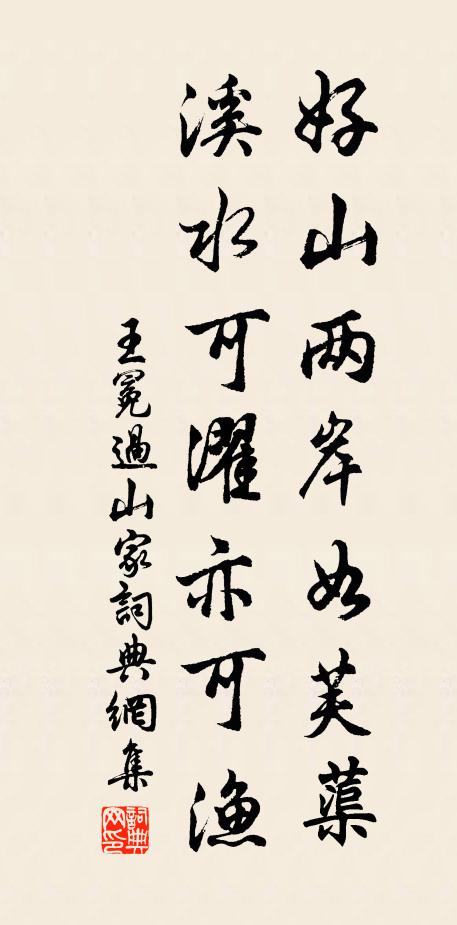 好山两岸如芙蕖
溪水可濯亦可漁
王冕過山家詞典網集
詞典网印